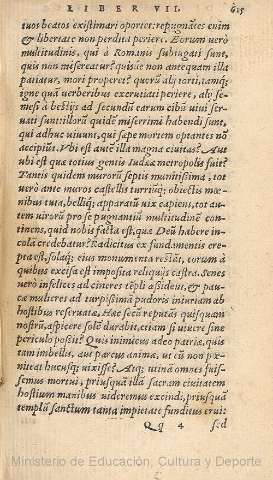 LIBER VII. 615
tuos beatos existimari oportet: repugnãtes enim
& libertate non perdita periere. Eorum verò
multitudinis, qui à Romanis subiugati sunt,
quis non misereatur? quisue non antequam illa
patiatur, mori properet? quorũ alij torti, tamq;
igne quã verberibus excruciati periere, alij se-
mesi à bestijs ad secundũ earum cibũ viui ser-
uati sunt: illorũ quidẽ miserrimi habendi sunt,
qui adhuc viuunt, qui sæpe mortem optantes nõ
accipiũt. Vbi est autẽ illa magna ciuitas? Aut
vbi est quæ totius gentis Iudææ metropolis fuit?
Tantis quidem murorũ septis munitissima, tot
verò ante muros castellis turriũq; obiectis mœ-
nibus tuta, belliq; apparatũ vix capiens, tot au-
tem virorũ pro se pugnantiũ multitudinẽ con-
tinens, quid nobis facta est, quã Deũ habere in-
colã credebatur? Radicitus ex fundamentis ere-
pta est, solaq; eius monumenta restãt, eorum à
quibus excisa est imposita reliquijs castra. Senes
verò infelices ad cineres tẽpli assident, & pau-
cæ mulieres ad turpissimã pudoris iniuriam ab
hostibus reseruatæ, Hæc secũ reputãs quisquam
nostrũ, aspicere solẽ durabit, etiam si viuere sine
periculo possit? Quis inimicus adeo patriæ, quis
tam imbellis, aut parcus anima, vt eũ non pœ-
niteat hucusq; vixisse? Atq; vtinã omnes fuis-
semus mortui, priusquã illã sacram ciuitatem
hostium manibus videremus excindi, priusquã
templũ sanctum tanta impietate funditus erui:
Qq 4 s;d
Ministerio de Educación, Cultura y Deporte